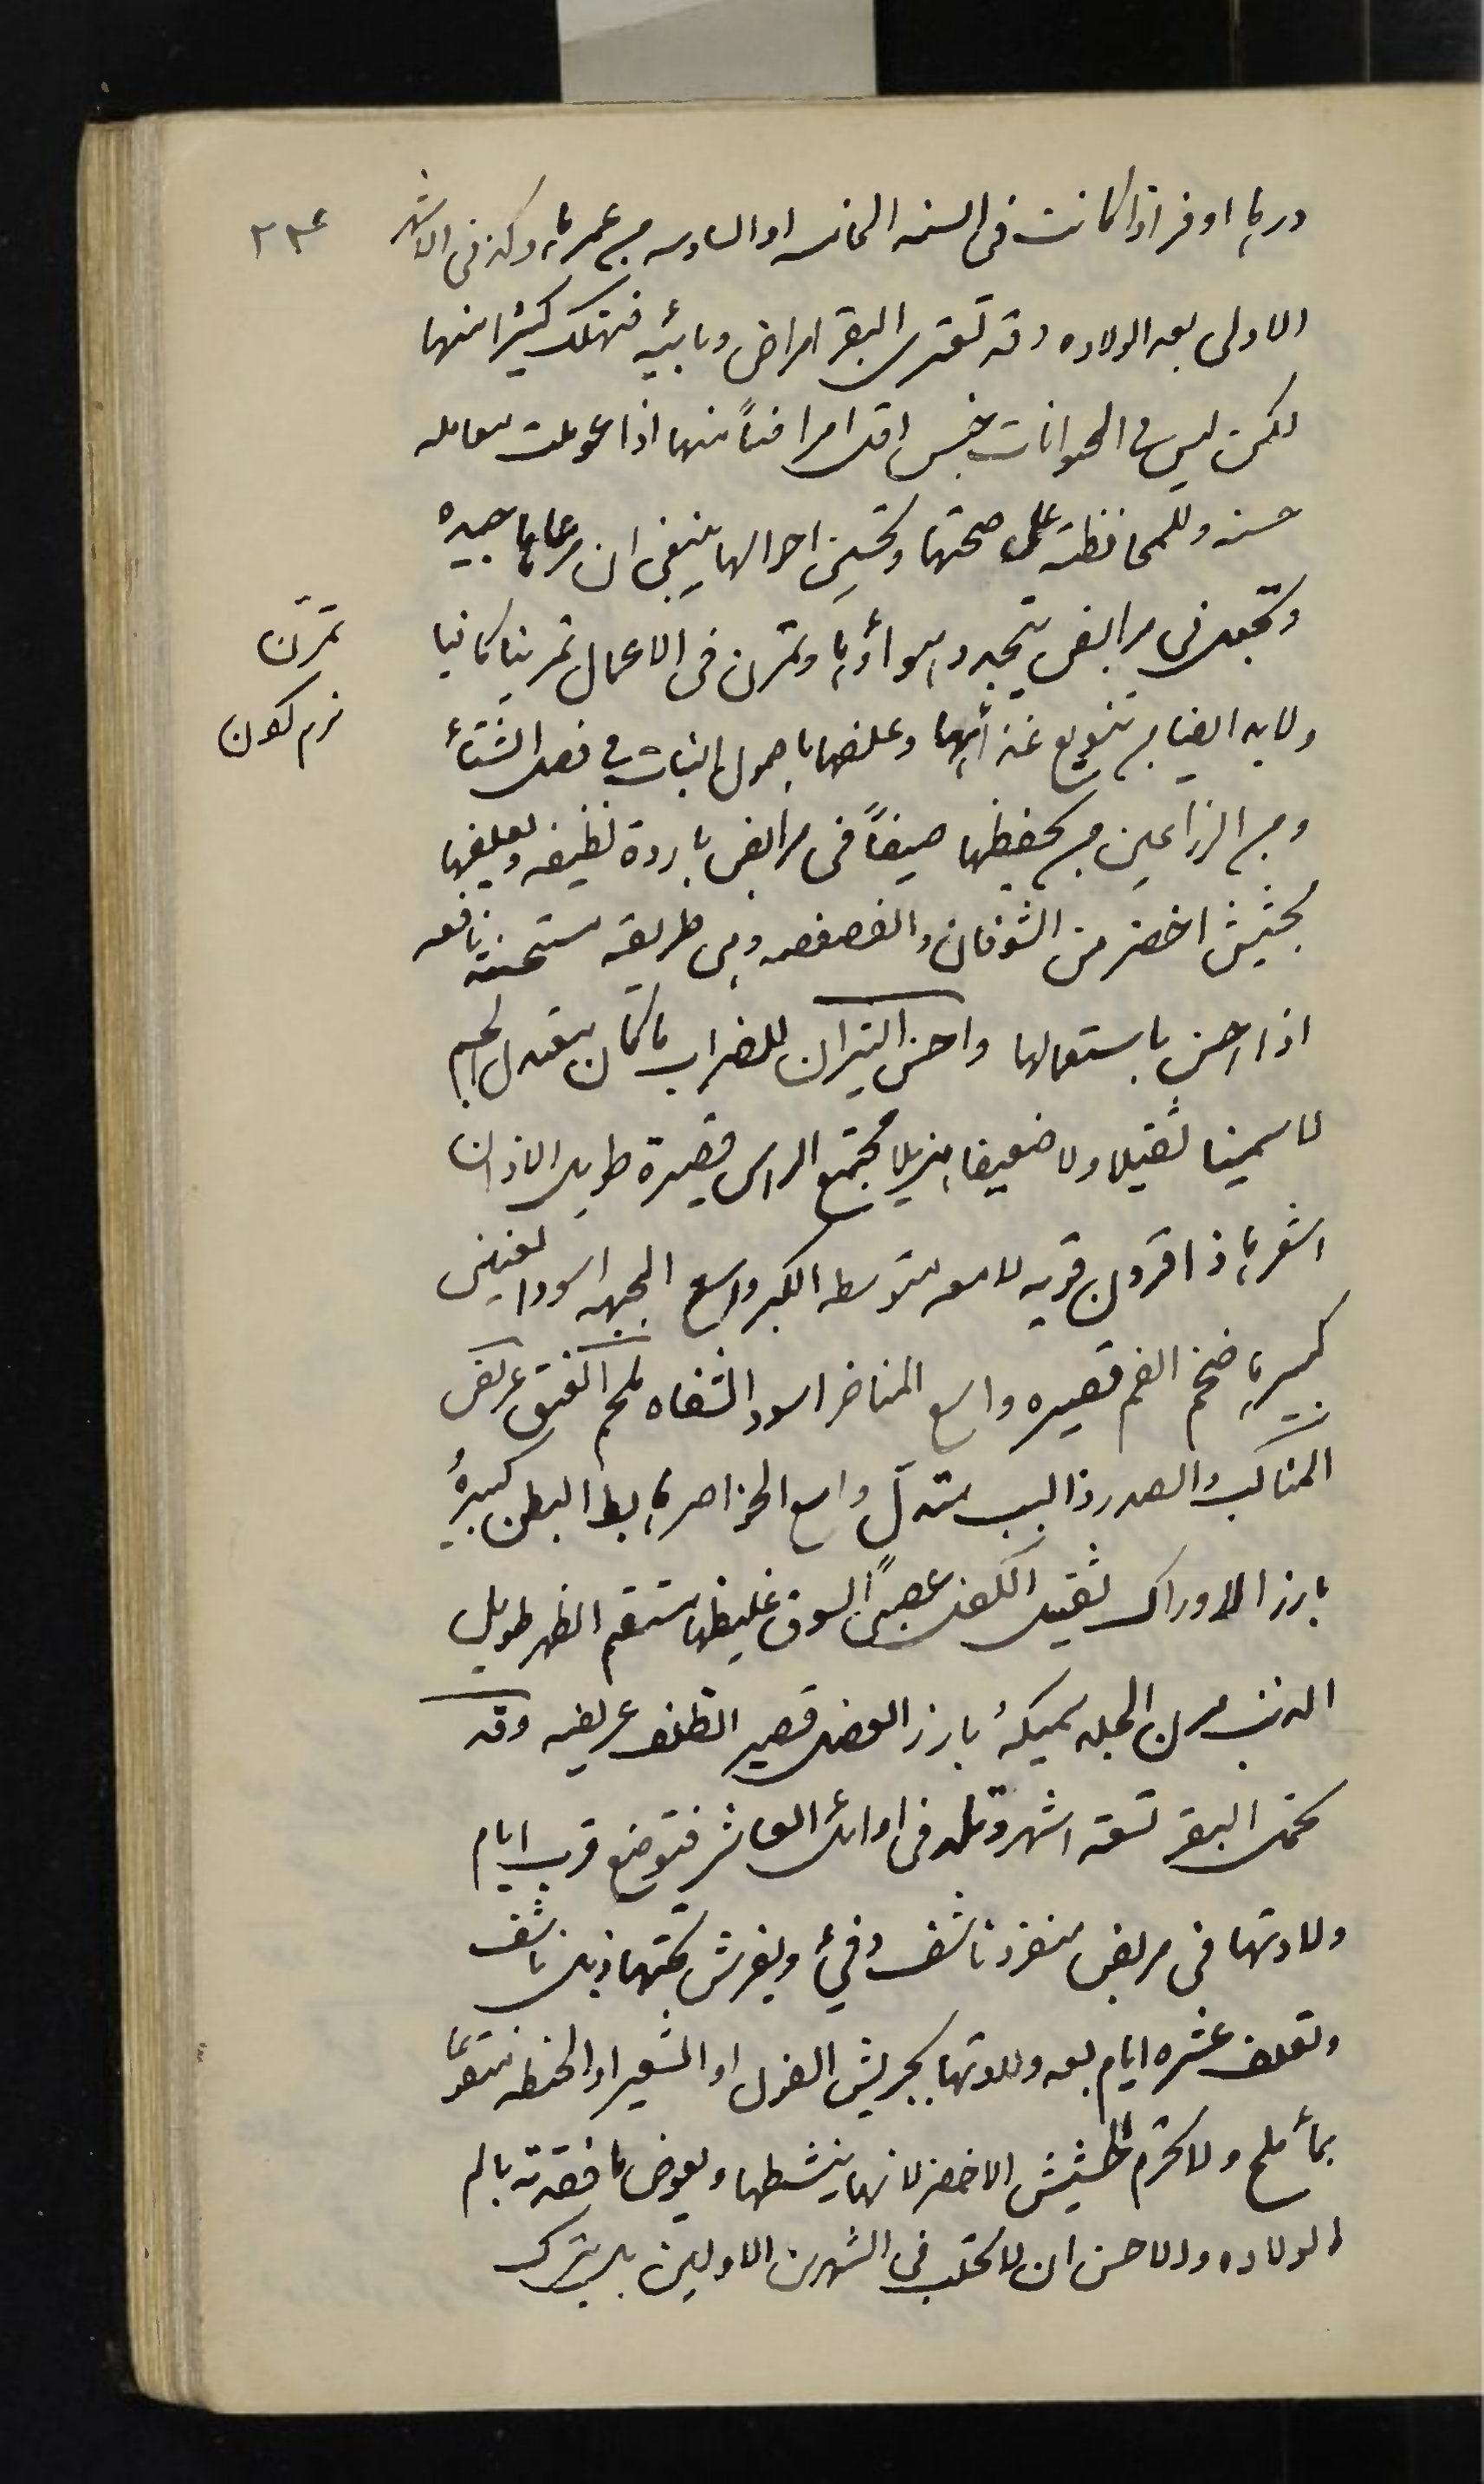 ٢٣٤
درها اوفر اذا كانت فى السنه الخامسه او السادسه من عمرها وكذ فى الاشهر
الاولى بعد الولاده وقد تعترى البقر امراض وبائيه فتهلك كثيرا منها
لكن ليس فى الحيوانات جنس اقل امراضاً منها اذا عوملت معامله
حسنه وللمحافظة على صحتها وتحسين احوالها ينبغى ان مرعاها جيده
وتجعل فى مرابض يتجدد هوائها وتمرن فى الاعمال تمرينا كافيا
ولابد ايضا من تنويع غذائها وعلفها باصول النبات فى فصل الشتاء
ومن الزراعين من يحفظها صيفاً فى مرابض باردة نظيفه ويعلفها
بحشيش اخضر من الشوفان والفصفصه وهى طريقه مستحسنه نافعه
اذا احسن باستعمالها واحسن الثيران للضراب ما كان معتدل الجسم
لا سمينا ثقيلا ولا ضعيفا هزيلا مجتمع الراس قصيرة طويل الاذان
اشعرها ذا قرون قويه لامعه متوسطه الكبر واسع الجبهه اسود العينين
كبيرها ضخم الفم قصيره واسع المناخر اسود الشفاه ملحم العنق عريض
المناكب والصدر ذا لبب متدل واسع الخواصر هابط البطن كبيرهُ
بارز الاوراك ثقيل الكفل عصبىً السوق غليظها مستقيم الظهر طويل
الذنب مرن الجلد سميكهُ بارز العضل قصير الظلف عريضه وقد
تحمل البقر تسعة اشهر وتلد فى اوائل العاشر فتوضع قرب ايام
ولادتها فى مربض منفرد ناشف دفئ ويفرش تحتها زبل ناشف
وتعلف عشره ايام بعد ولادتها بجريش الفول او الشعير او الحنطه منتقعا
بماء ملح ولا تحرم الحشيش الاخضر لانها ينشطها ويعوض ما فقدته بالم
الولاده والاحسن ان لا تحلب فى الشهرين الاولين بل يترك
تمرّن
نرم كون